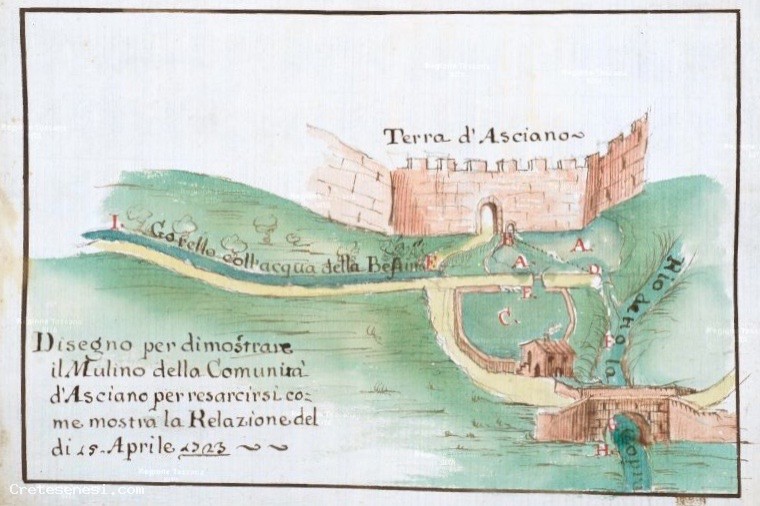 Terra d'Asciano
I.
Gorello coll'acqua della Bestina
E.
A.
A.
D.
F.
C.
Rio detto la Copra
H.
Disegno per dimostrare
il Mulino della Comunità
d'Asciano per resarcirsi co=
me mostra la Relazione del
di 15. Aprile 1723
Cretesenesi.com